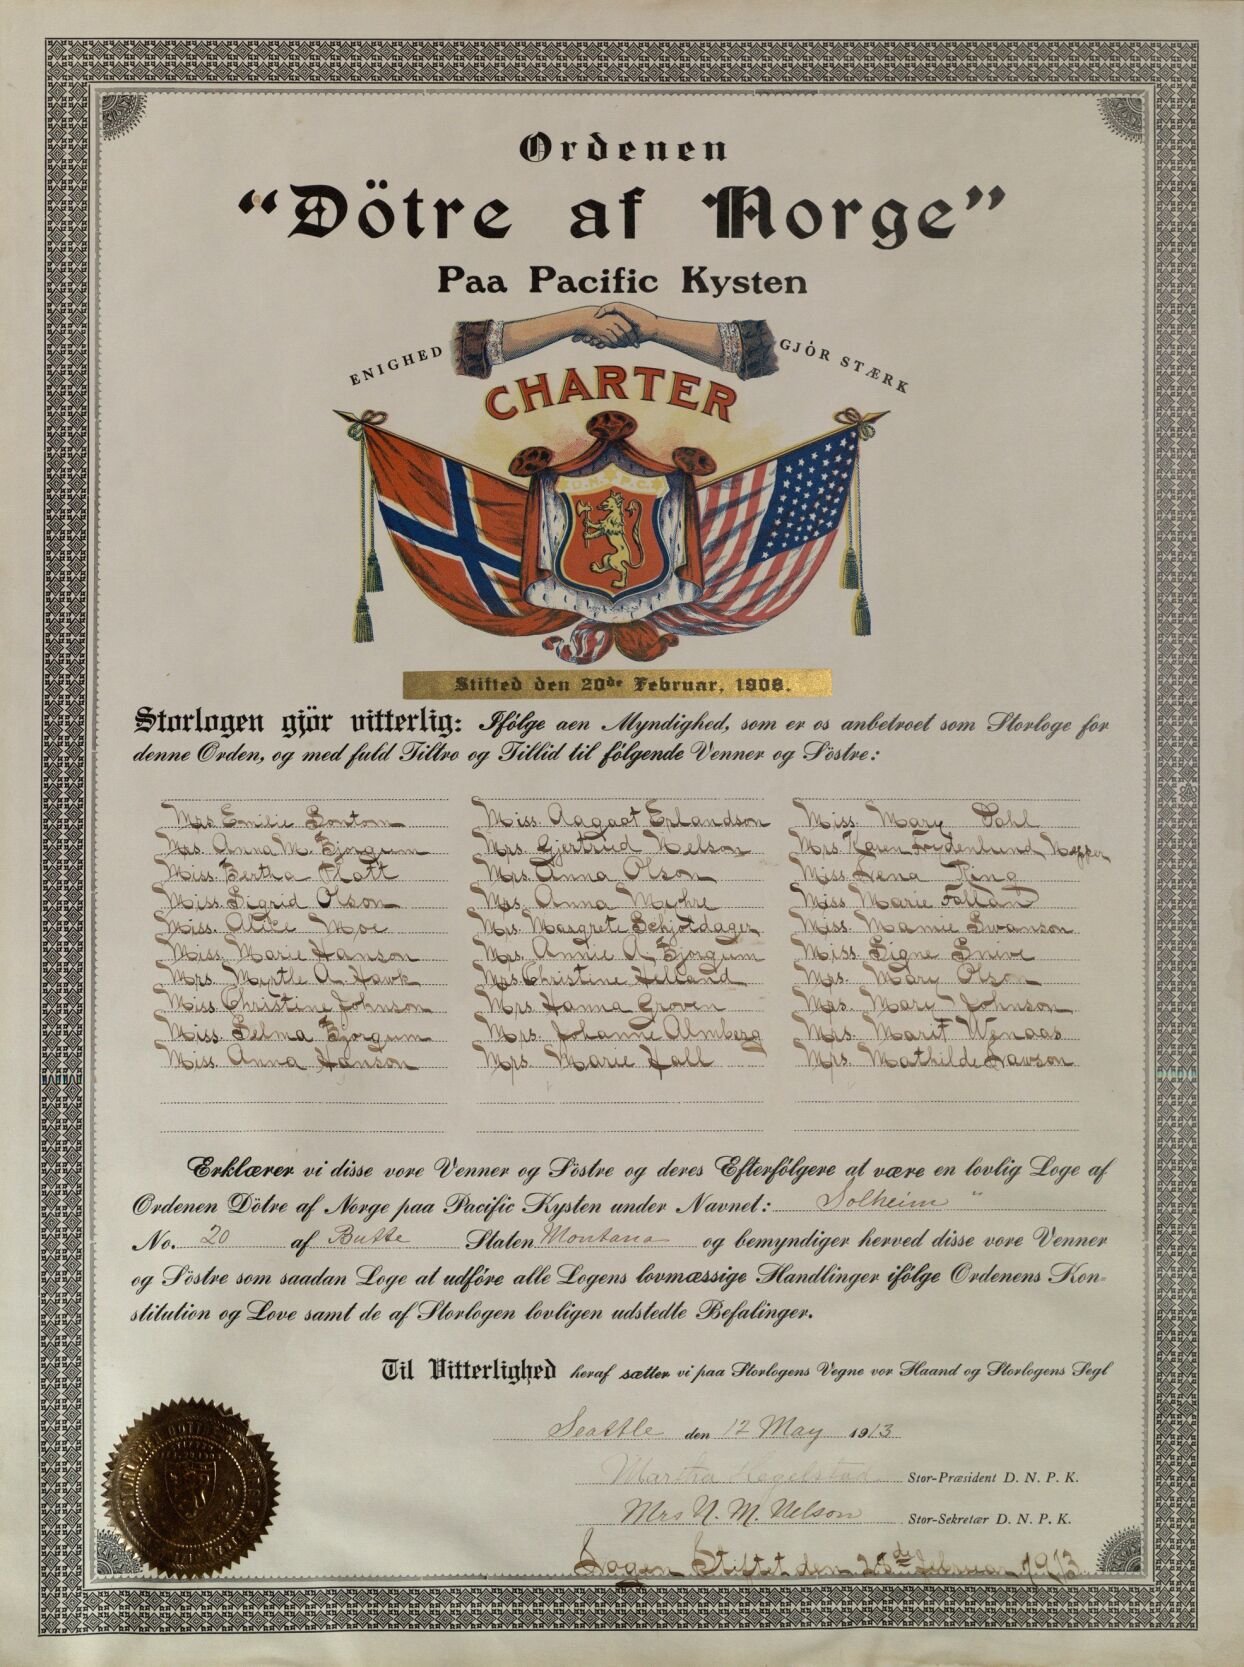 Ordenen
"Dötre af Norge"
Paa Pacific Kysten
ENIGHED GJÖR STÆRK
CHARTER
D. N. P. C.
Stifted den 20de Februar, 1908.
Storlogen gjör vitterlig: Ifölge aen Myndighed, som er os anbetroet som Storloge for
denne Orden, og med fuld Tiltro og Tillid til fölgende Venner og Söstre:
Mrs. Emilie Sontom Miss. Aagaat Erlandson Miss. Mary Dahl
Mrs. Anna M. Bjorgum Mrs. Gjertrud Nelson Mrs Karen Frydenlund
Miss. Bertha Platt Mrs. Anna Olson Miss Lena Ring
Miss. Sigrid Olson Mrs. Anna Myhre Miss Marie Folland
Miss. Alice Moe Mrs. Margrete Schjoldager Miss. Mamie Swanson
Miss. Marie Hanson Mrs. Annie A. Bjorgum Miss. Signe
Mrs. Myrtle A. Hawk Mrs. Christine Helland Mrs. Mary Olson
Miss Christine Johnson Mrs. Hanna Groven Mrs. Mary Johnson
Miss. Selma Bjorgum Mrs. Johanne Almberg Mrs. Marit Wenaas
Miss. Anna Hanson Mrs. Marie Hall Mrs. Mathilde Lawson
Erklærer vi disse vore Venner og Söstre og deres Efterfölgere at være en lovlig Loge af
Ordenen Dötre af Norge paa Pacific Kysten under Navnet: Solheim "
No. 20 af Butte Staten Montana og bemyndiger herved disse vore Venner
og Söstre som saadan Loge at udföre alle Logens lovmæssige Handlinger ifölge Ordenens Kon-
stitution og Love samt de af Storlogen lovligen udstedte Befalinger.
Til Vitterlighed heraf sætter vi paa Storlogens Vegne vor Haand og Storlogens Segl
Seattle den 12 May 1913
Martha Stor-Præsident D. N. P. K.
Mrs N. M. Nelson Stor-Sekretær D. N. P. K.
Logen Stiftet den Februar 1913